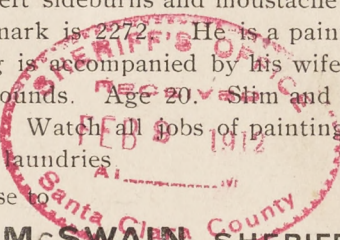 eft sideburns and moustache
mark is 2272. He is a pain
g is accompanied by his wife
ounds. Age 20. Slim and
Watch all jobs of painting
laundries
se to
McSWAIN, SHERIFF
SHERIFF'S OFFICE
Received
FEB 1912
At M
Santa Clara County